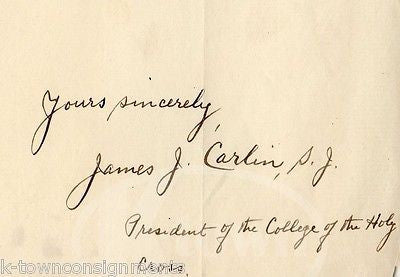 Yours sincerely,
James J. Carlin, S.J.
President of the College of the Holy
Cross,
k-townconsignments